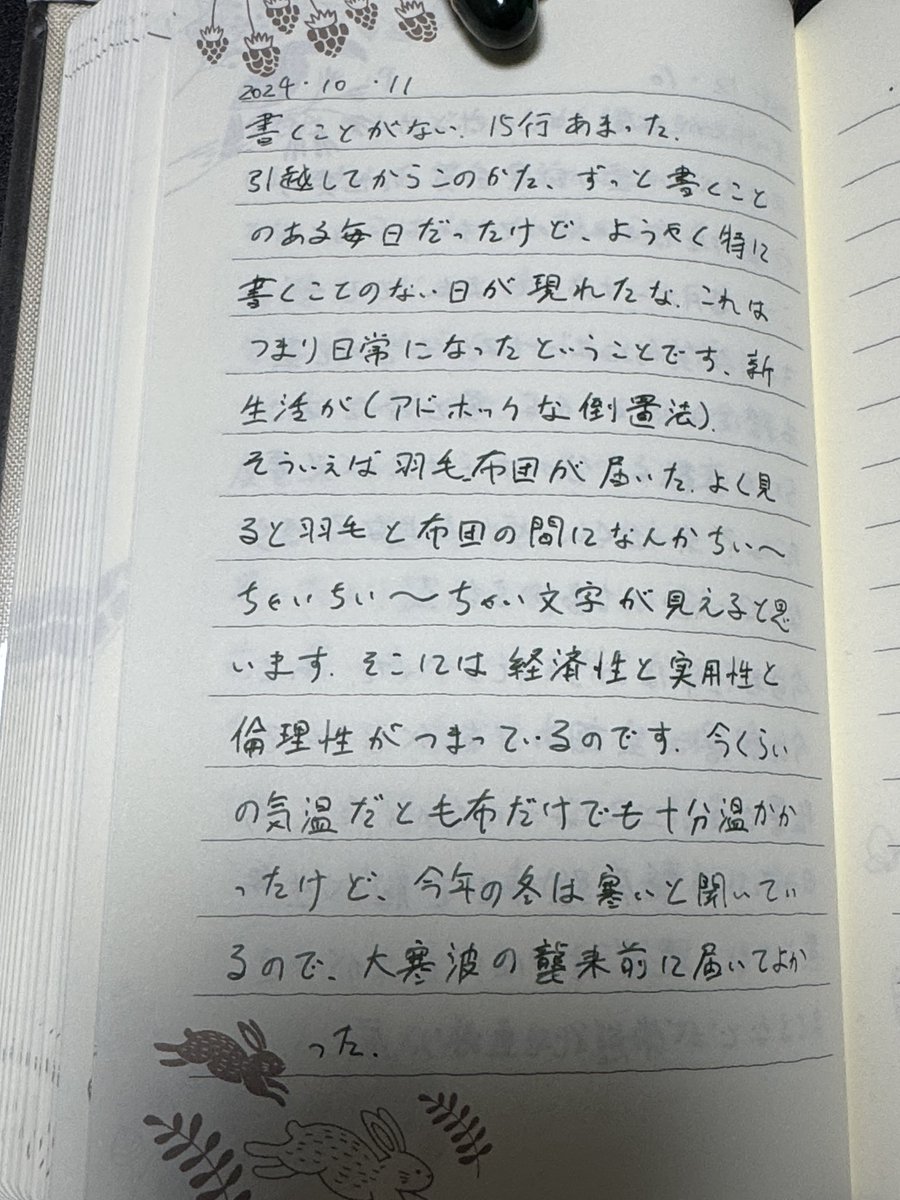 2024.10.11
書くことがない. 15行あまった.
引越してからこのかた、ずっと書くこと
のある毎日だったけど、ようやく特に
書くことのない日が現れたな. これは
つまり日常になったということです. 新
生活が(アドホックな倒置法).
そういえば羽毛布団が届いた. よく見
ると羽毛と布団の間になんかちぃ〜
ちゃいちぃ〜ちゃい文字が見えると思
います. そこには経済性と実用性と
倫理性がつまっているのです. 今くらい
の気温だと毛布だけでも十分温かか
ったけど、今年の冬は寒いと聞いてい
るので、大寒波の襲来前に届いてよか
った.